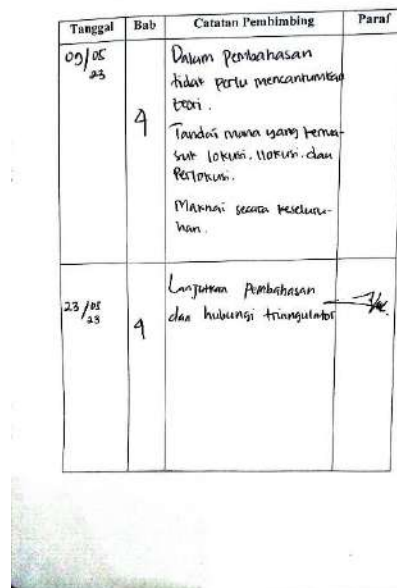 Tanggal Bab Catatan Pembimbing Paraf
09/05 23
4
Dalam Pembahasan
tidak perlu mencantumkan
teori.
Tandai mana yang terma-
suk lokusi, Ilokusi, dan
Perlokusi.
Maknai secara keseluru-
han.
23/05 23
4
Lanjutkan Pembahasan
dan hubungi triangulator